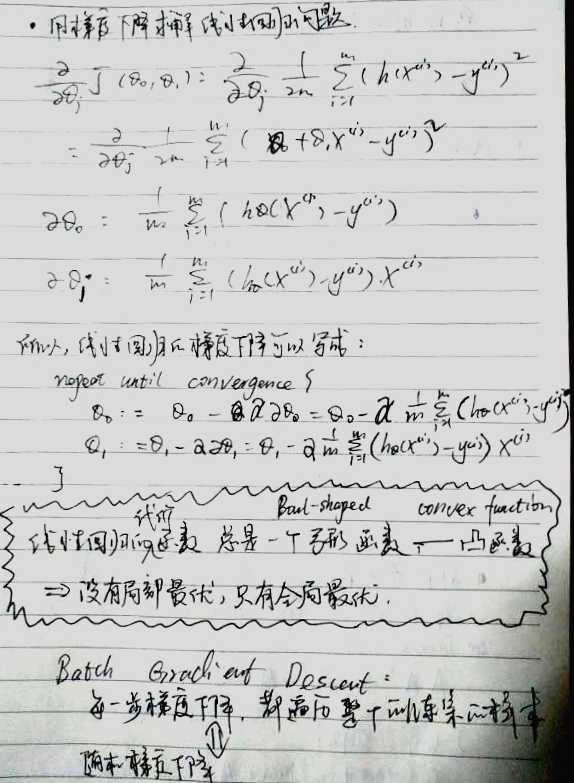 • 用梯度下降求解线性回归问题.
∂/∂θj J(θ0, θ1) = ∂/∂θj 1/2m Σ_{i=1}^{m} (h(x^(i)) - y^(i))^2
= ∂/∂θj 1/2m Σ_{i=1}^{m} (θ0 + θ1 x^(i) - y^(i))^2
∂θ0 = 1/m Σ_{i=1}^{m} (hθ(x^(i)) - y^(i))
∂θj = 1/m Σ_{i=1}^{m} (hθ(x^(i)) - y^(i)) · x^(i)
所以, 线性回归的梯度下降可以写成:
repeat until convergence {
θ0 := θ0 - α ∂θ0 = θ0 - α 1/m Σ_{i=1}^{m} (hθ(x^(i)) - y^(i))
θ1 := θ1 - α ∂θ1 = θ1 - α 1/m Σ_{i=1}^{m} (hθ(x^(i)) - y^(i)) x^(i)
}
代价 Bowl-shaped convex function
线性回归的函数 总是一个弓形函数 — 凸函数
⇒ 没有局部最优, 只有全局最优.
Batch Gradient Descent:
每一步梯度下降, 都遍历整个训练集的样本
⇕
随机梯度下降